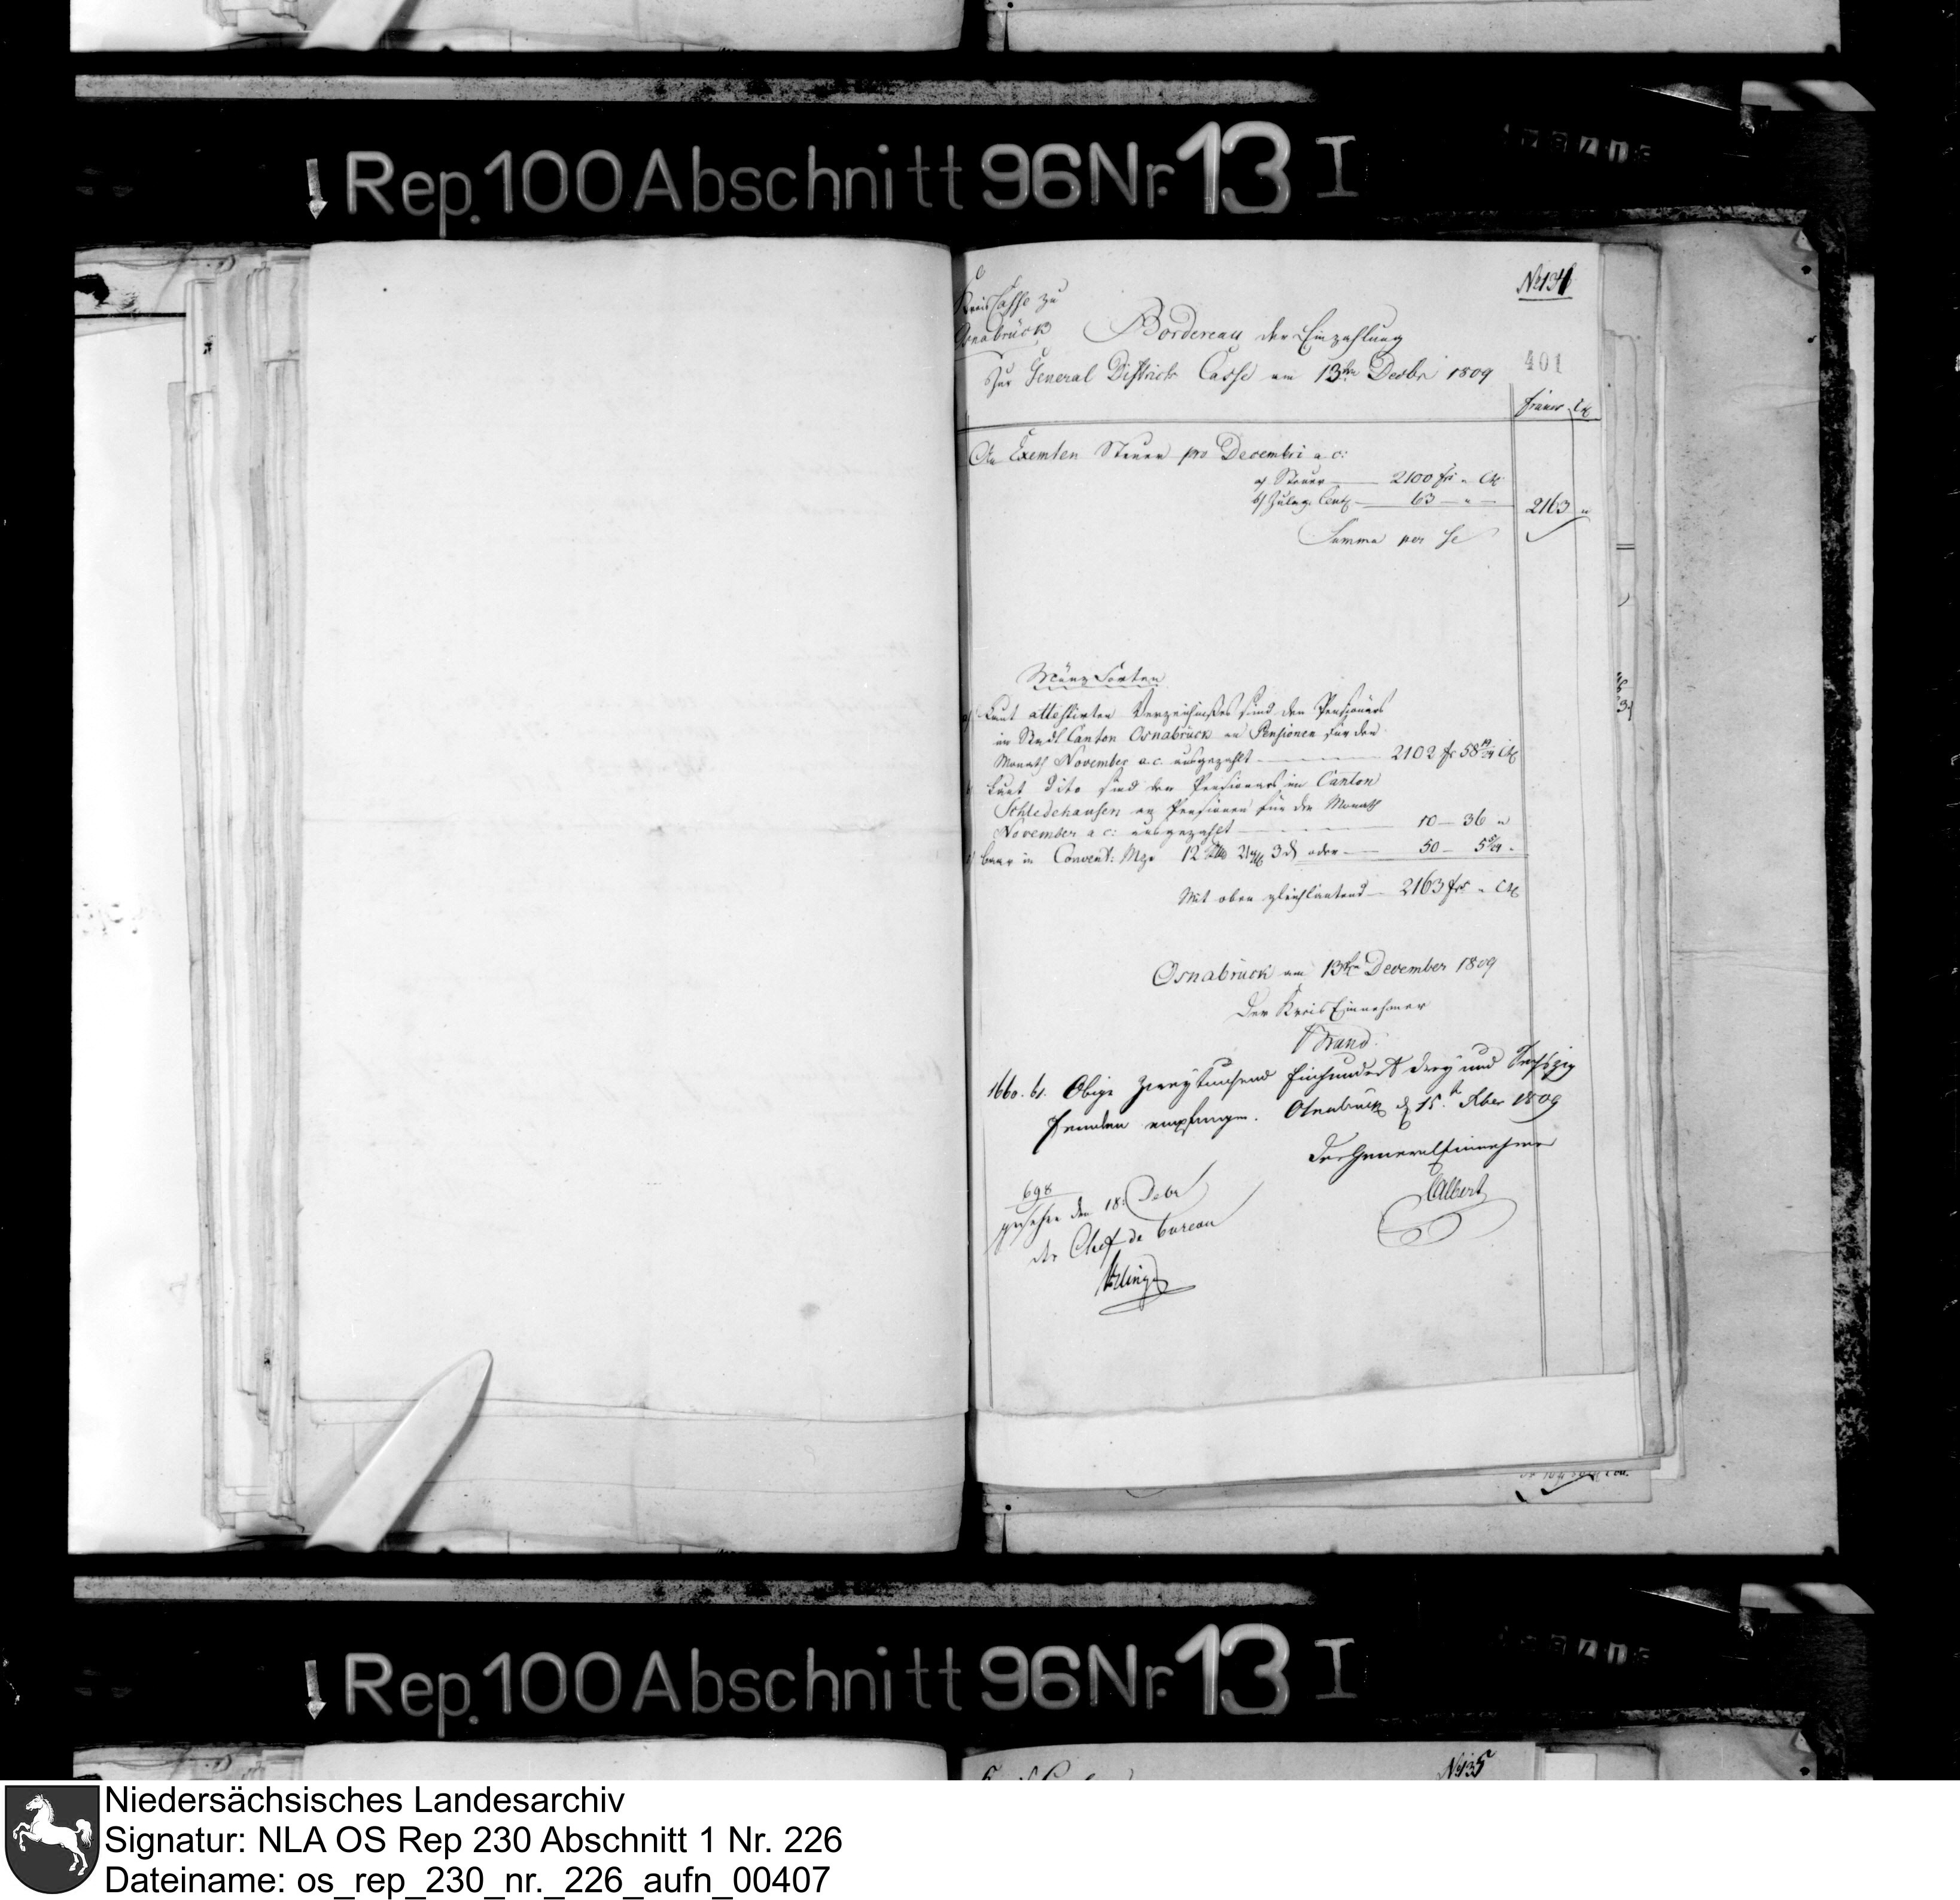 Rep. 100 Abschnitt 96 Nr. 13 I
Kreis Casse zu
Osnabrück
Bordereau der Einzahlung
Zur General District Casse am 13ten Decbr 1809
401
francs Ct
An Exemten Steuer pro Decembri a. c:
a) Steuer 2100 frs " Ct
b) Zulag. Cent 63 — " —
2163 "
Summa per se
Münz Sorten
Laut attestirten Verzeichnißes sind den Pensionärs
im Stadt Canton Osnabrück an Pensionen für den
Monath November a. c. ausgezahlt 2102 fr 58 Ct
Laut dito sind den Pensionairs im Canton
Schledehausen an Pensionen für den Monath
November a c: ausgezahlt 10 — 36 "
baar in Convent: Mze 12 3 oder 50 — 5
Mit oben gleichlautend 2163 frs " Ct
Osnabrück am 13ten December 1809
Der Kreis Einnehmer
Brand
1660. 61. Obige Zweytausend Einhundert drey und Sechszig
Franken empfangen. Osnabrück d 15. Xber 1809
Der General Einnehmer
Albert
698
gesehen den 18. Debr
der Chef de bureau
Rep. 100 Abschnitt 96 Nr. 13 I
No 135
Niedersächsisches Landesarchiv
Signatur: NLA OS Rep 230 Abschnitt 1 Nr. 226
Dateiname: os_rep_230_nr._226_aufn_00407